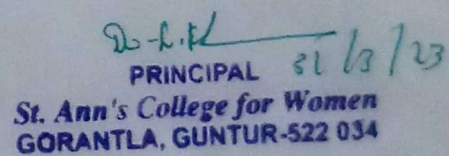 31/3/23
PRINCIPAL
St. Ann's College for Women
GORANTLA, GUNTUR-522 034